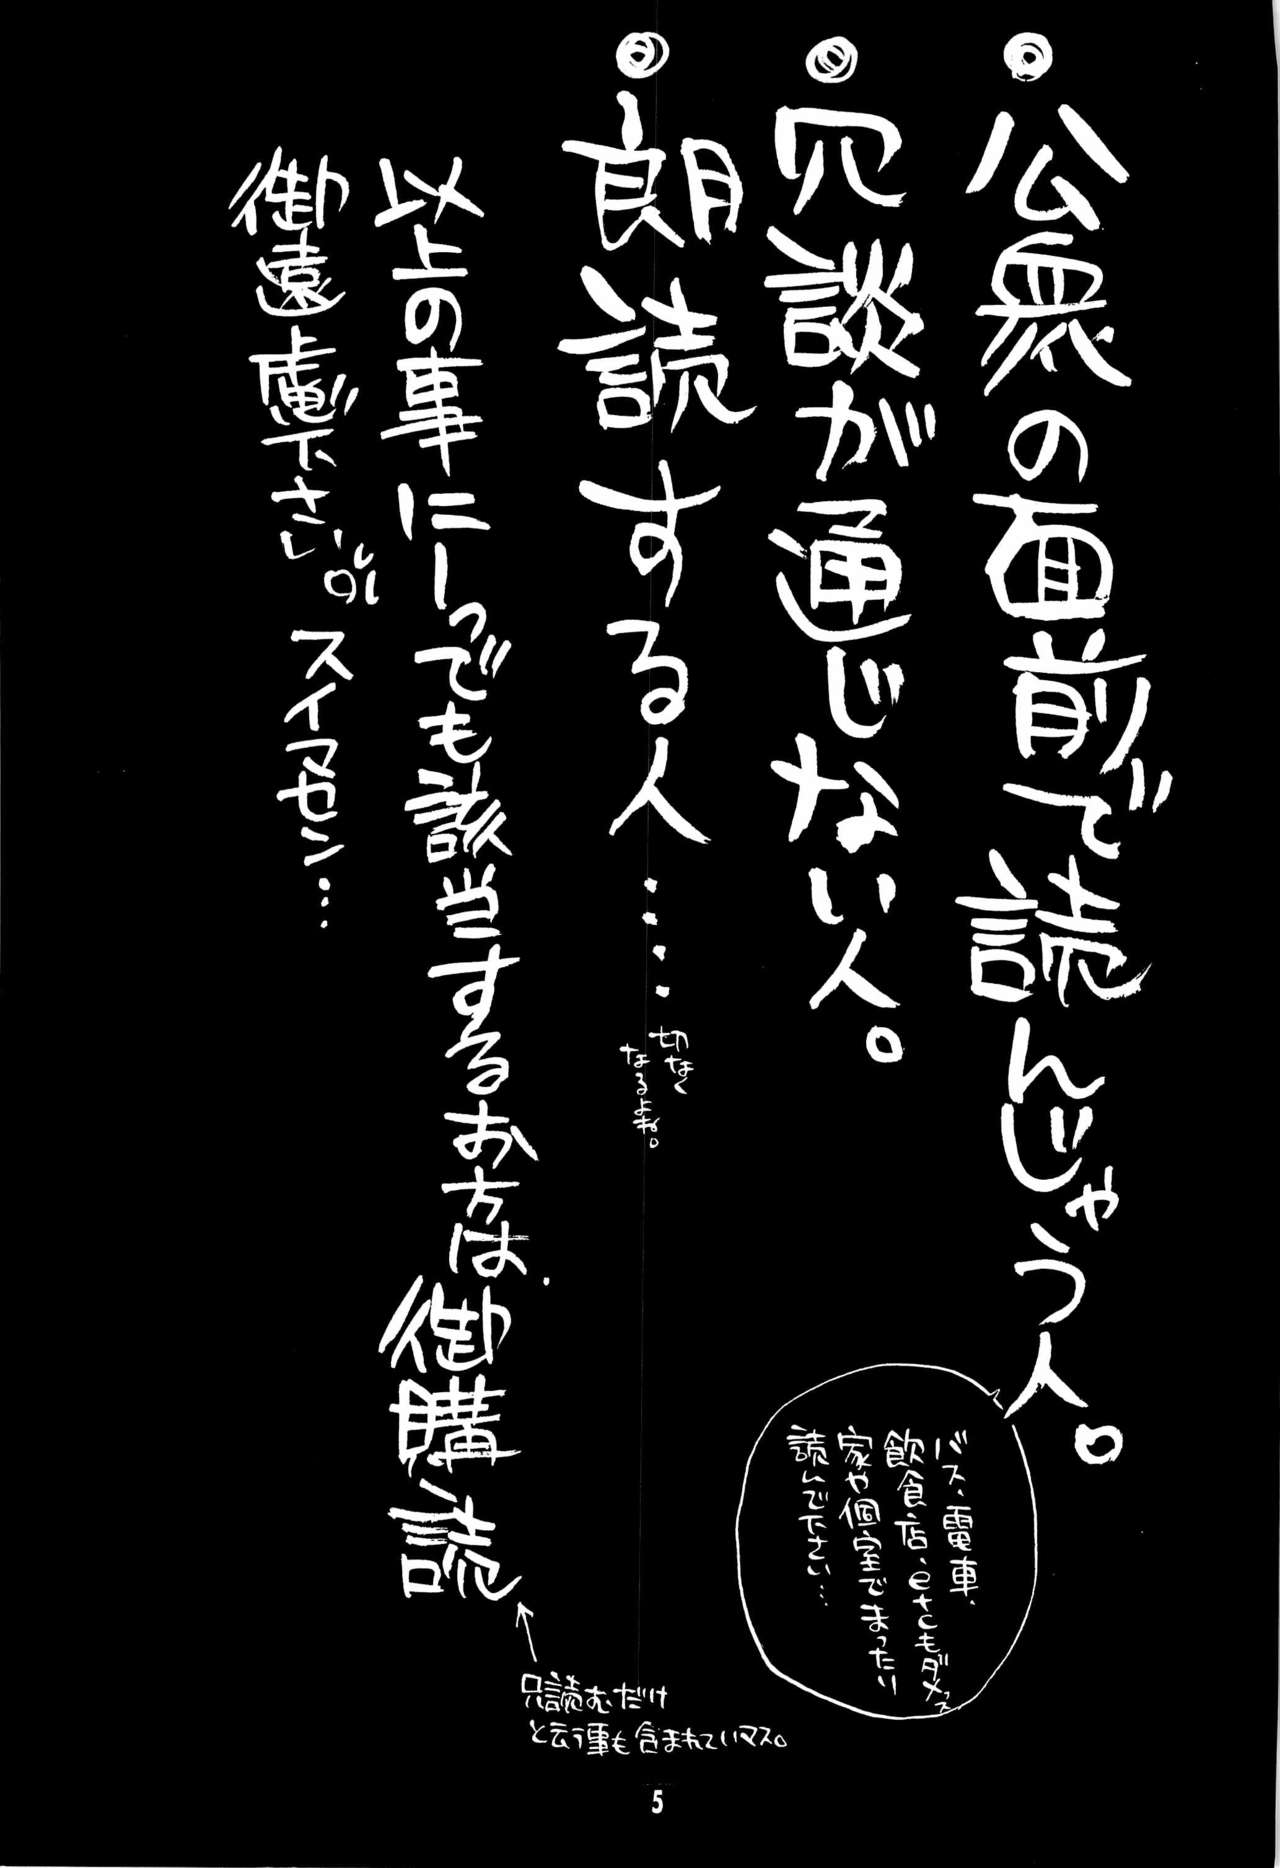 ◎公衆の面前で読んじゃう人。
バス、電車、
飲食店、etcもダメっス
家や個室でまったり
読んで下さい…
◎冗談が通じない人。
◎朗読する人……
切なく
なるよね。
以上の事に一つでも該当するお方は、御購読
只読むだけ
と云う事も含まれていマス。
御遠慮下さい。
スイマセン…
5